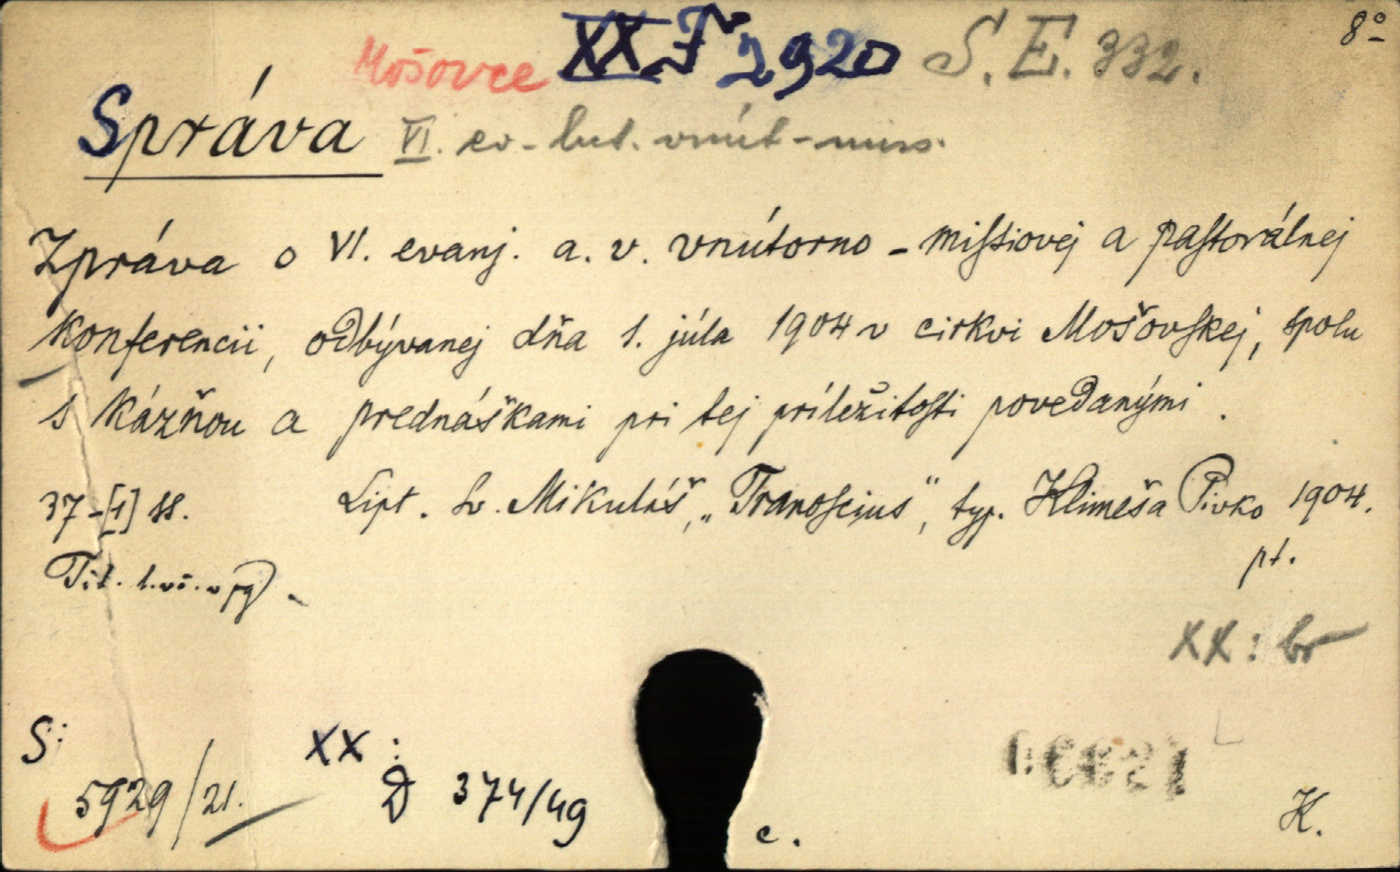 8°
Mošovce XX J 2920 S. E. 332.
Správa VI. ev.-lut. vnút-miss.
Zpráva o VI. evanj. a. v. vnútorno-missiovej a pastorálnej
konferencii, odbývanej dňa 1. júla 1904 v cirkvi Mošovskej, spolu
s kázňou a prednáškami pri tej príležitosti povedanými.
37-[1] ss. Lipt. Sv. Mikuláš, „Tranoscius", typ. Klimeša Pivko 1904.
pt.
Tit.
XX: br
Si
XX:
5929/21. D 374/49
c. K.